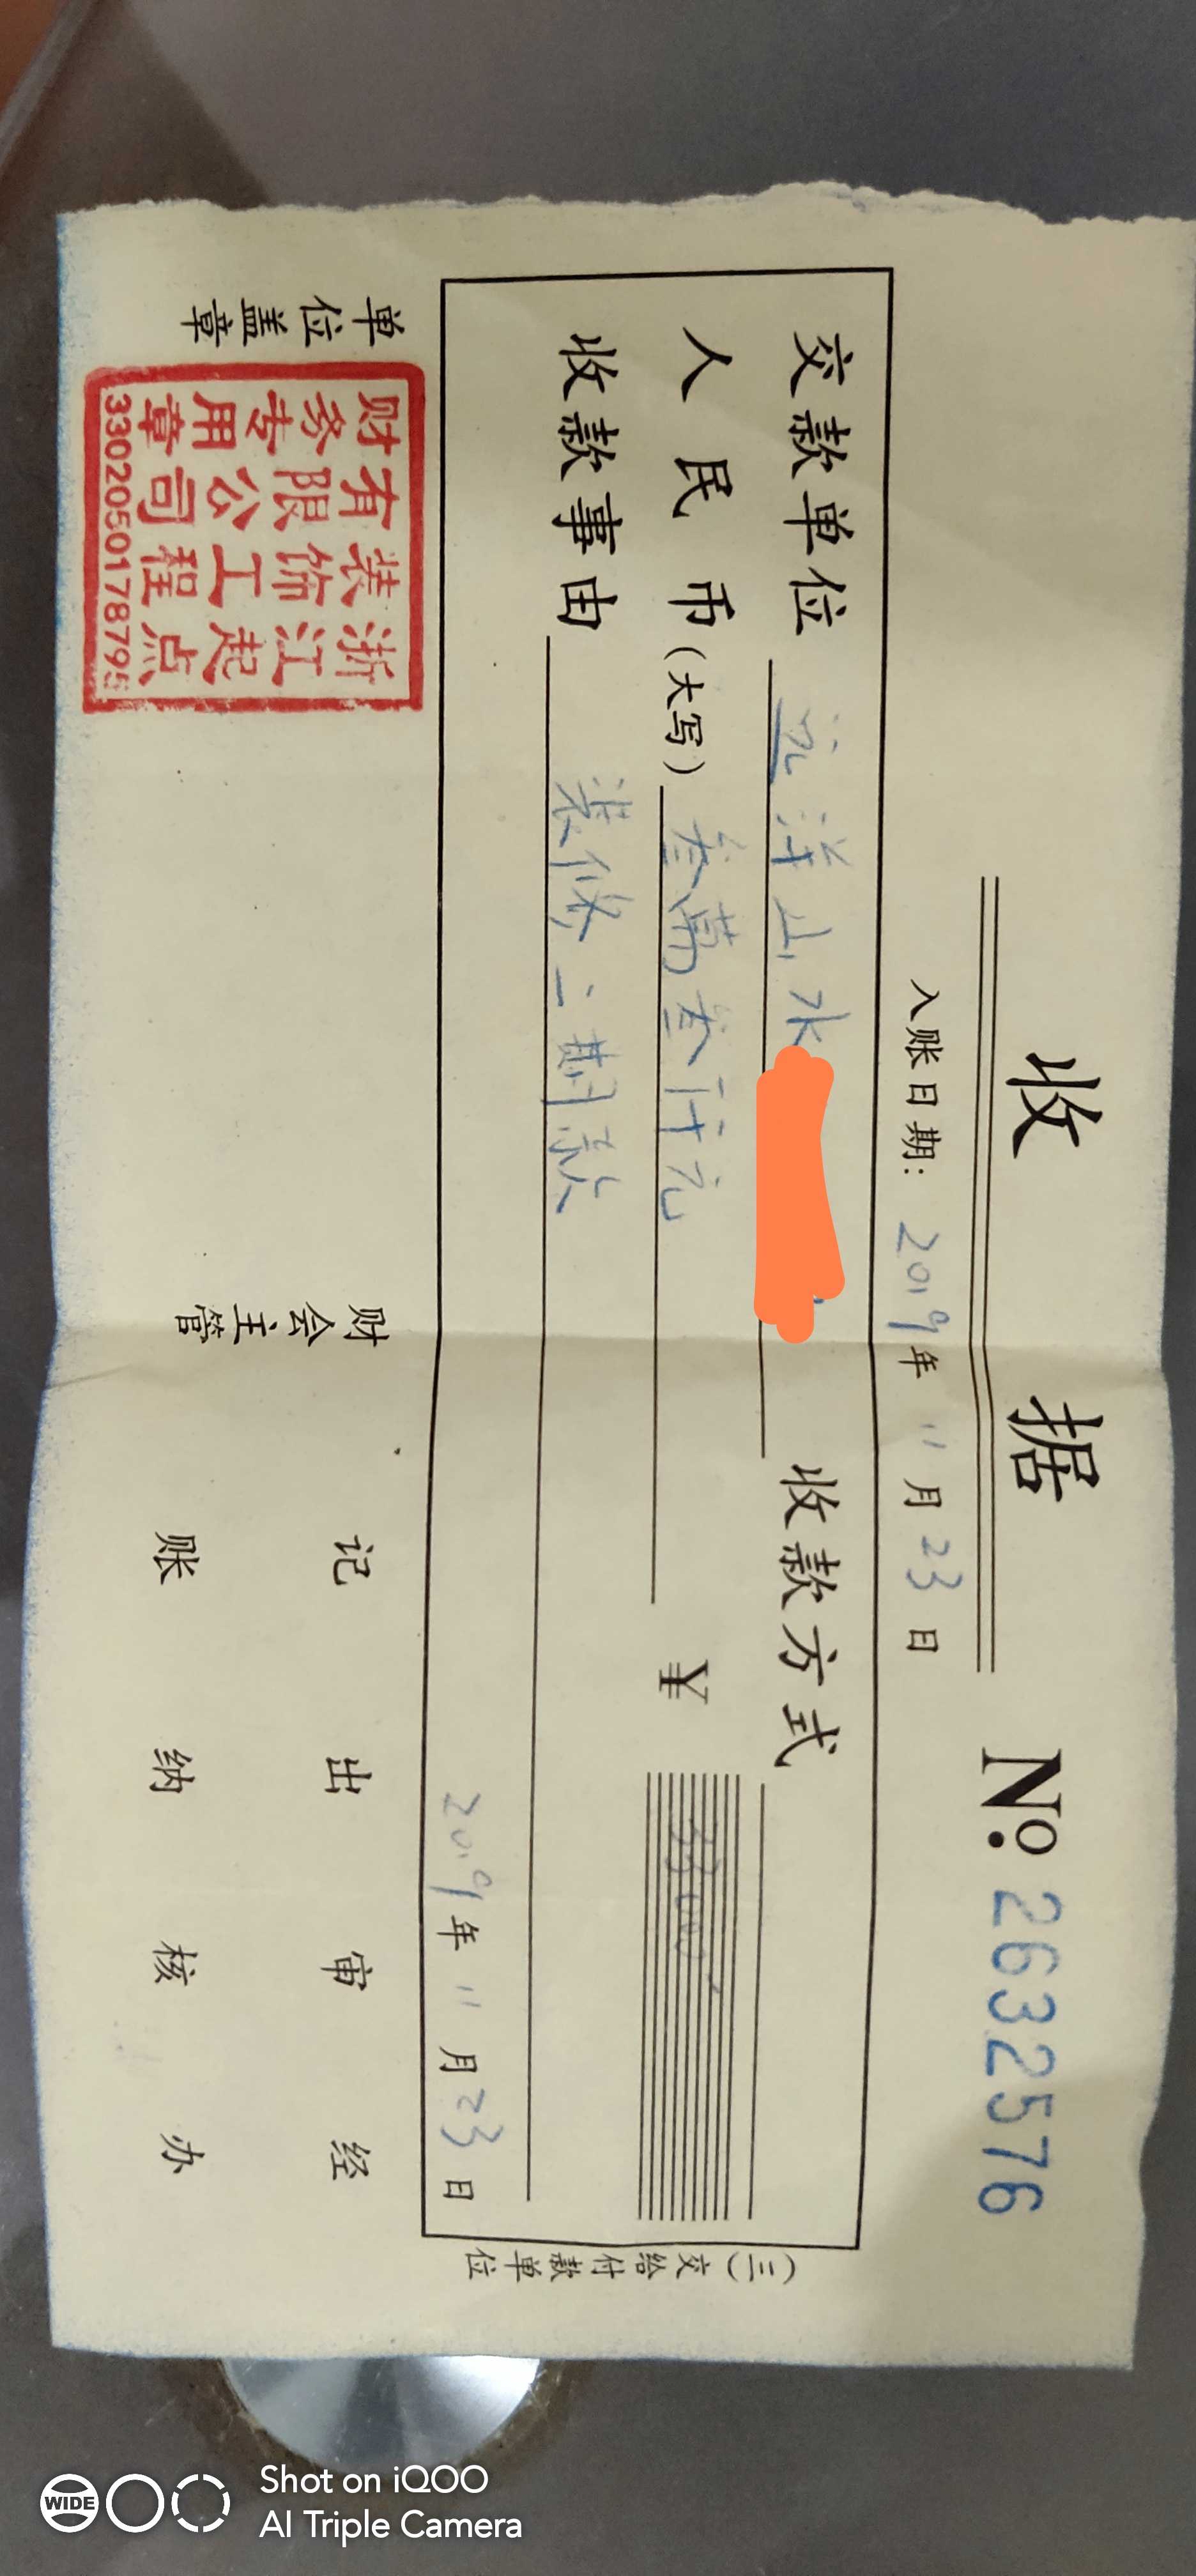 收 据
№ 2632576
入账日期: 2019年 11月 23日
交款单位 远洋山水 收款方式
人民币(大写) 叁萬叁仟元 ¥ 33000
收款事由 装修二期款
2019年 11月 23日
(三)交给付款单位
单位盖章 财会主管 记账 出纳 审核 经办
浙江起点
装饰工程
有限公司
财务专用章
3302050178795
WIDE
Shot on iQOO
AI Triple Camera